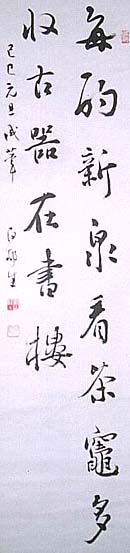 每酌新泉看茶竈多
收古器在書樓
己巳元旦筆